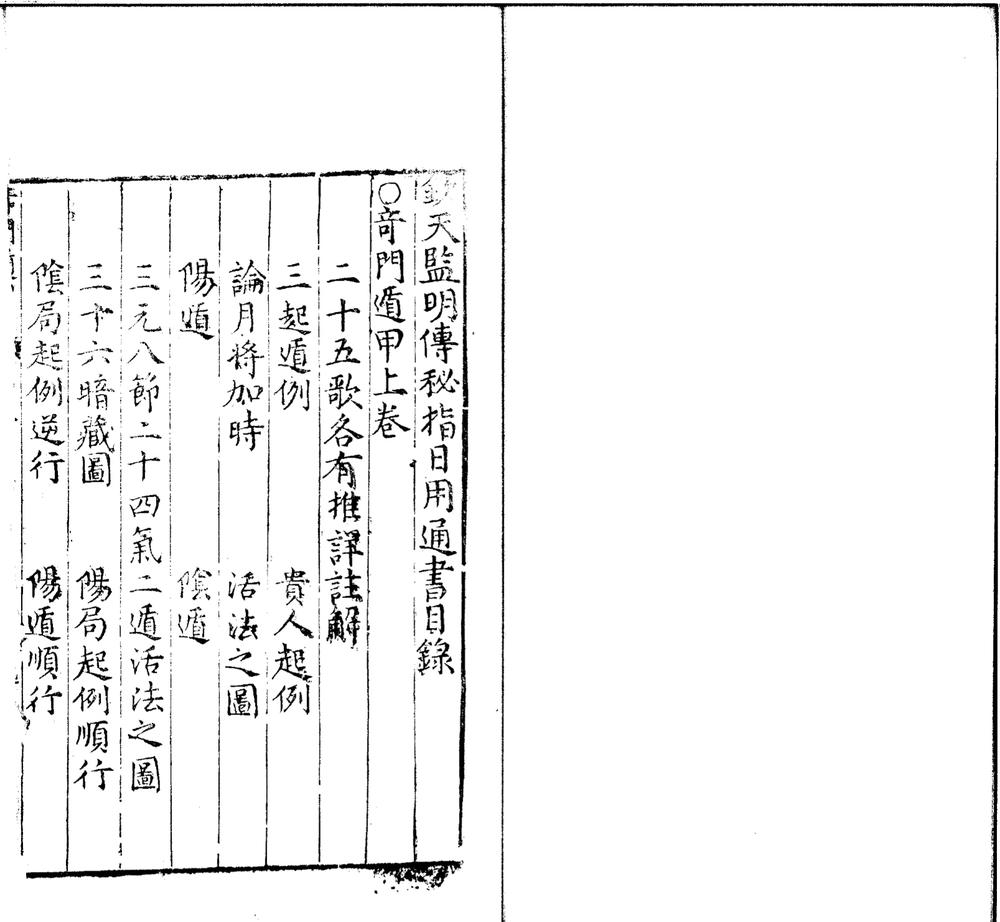 欽天監明傳秘指日用通書目錄
○竒門遁甲上卷
二十五歌各有推詳註解
三起遁例 貴人起例
論月將加時 活法之圖
陽遁 陰遁
三元八節二十四氣二遁活法之圖
三十六暗藏圖 陽局起例順行
陰局起例逆行 陽遁順行